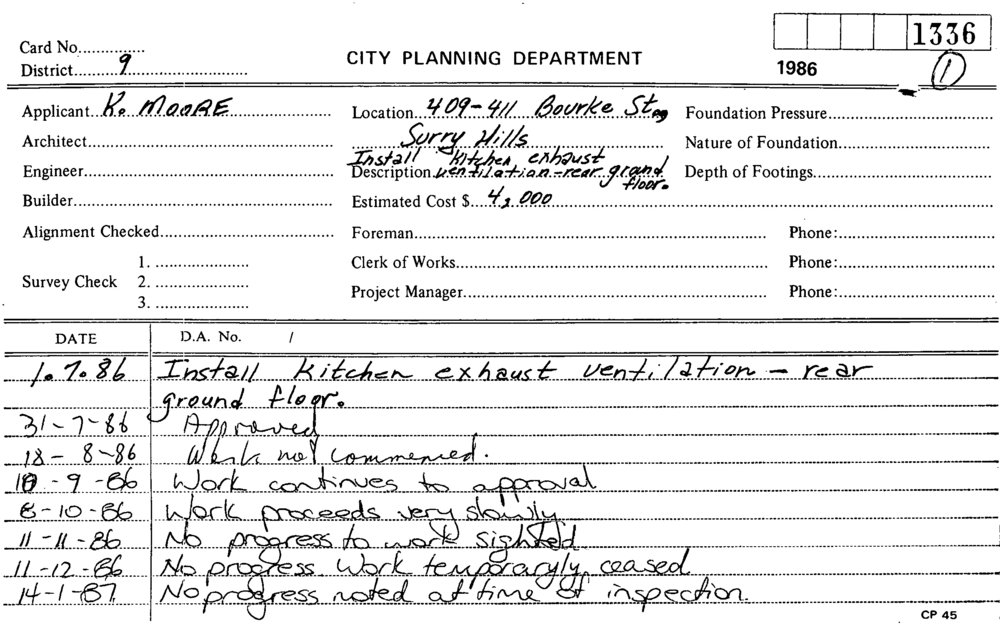 1336
Card No...............
District.........9...........................
CITY PLANNING DEPARTMENT
1986
1
Applicant K. MOORE
Location 409-411 Bourke St.,
Foundation Pressure
Architect
Surry Hills
Nature of Foundation
Engineer
Install kitchen exhaust
Description ventilation - rear ground floor.
Depth of Footings
Builder
Estimated Cost $ 4,000
Alignment Checked
Foreman
Phone:
Survey Check
1.
2.
3.
Clerk of Works
Phone:
Project Manager
Phone:
DATE D.A. No. /
1.7.86 Install kitchen exhaust ventilation - rear
ground floor.
31-7-86 Approved
18-8-86 Work not commenced.
10-9-86 Work continues to approval
8-10-86 Work proceeds very slowly
11-11-86 No progress to work sighted
11-12-86 No progress Work temporaryly ceased
14-1-87 No progress noted at time of inspection.
CP 45